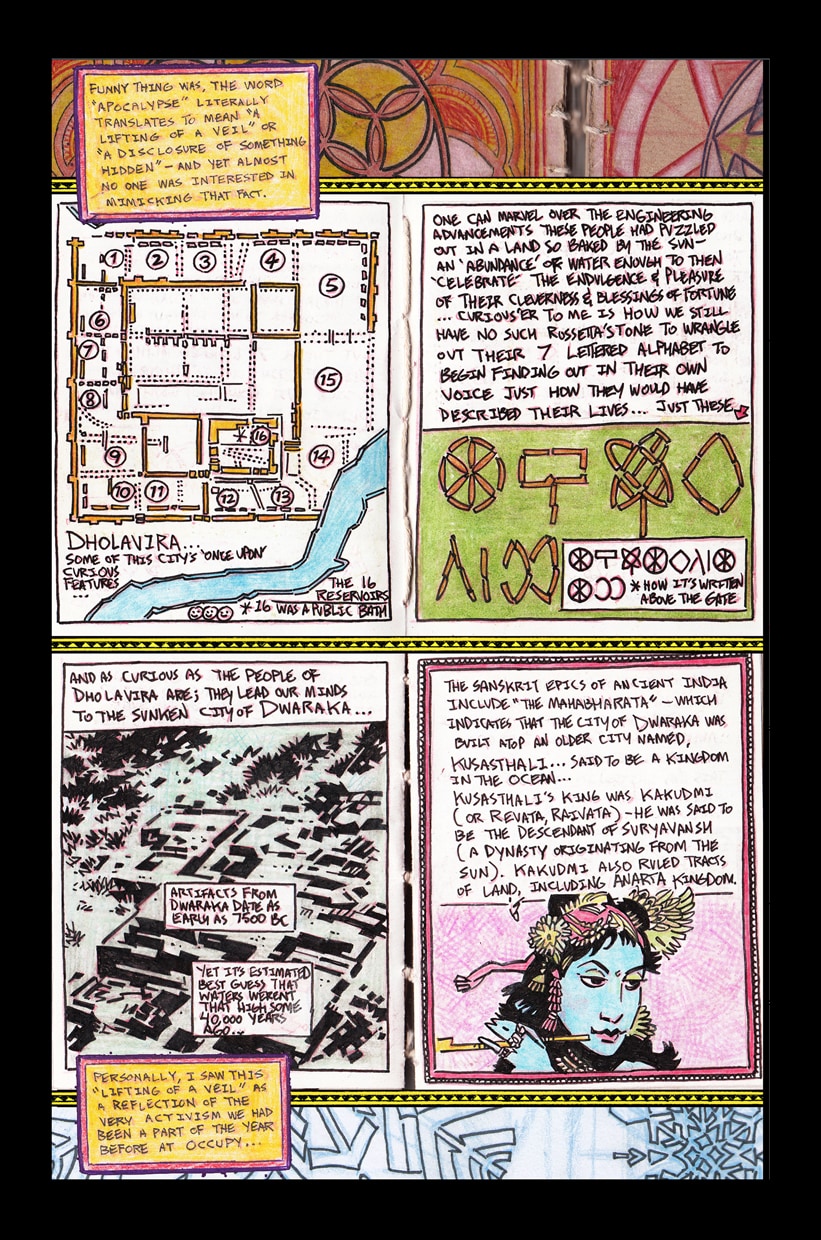 FUNNY THING WAS, THE WORD
"APOCALYPSE" LITERALLY
TRANSLATES TO MEAN "A
LIFTING OF A VEIL" OR
"A DISCLOSURE OF SOMETHING
HIDDEN" – AND YET ALMOST
NO ONE WAS INTERESTED IN
MIMICKING THAT FACT.
1 2 3 4
5
6
7
8
15
* 16
9
14
10 11 12 13
DHOLAVIRA...
SOME OF THIS CITY'S 'ONCE UPON'
CURIOUS
FEATURES
...
THE 16
RESERVOIRS
* 16 WAS A PUBLIC BATH
ONE CAN MARVEL OVER THE ENGINEERING
ADVANCEMENTS THESE PEOPLE HAD PUZZLED
OUT IN A LAND SO BAKED BY THE SUN–
AN 'ABUNDANCE' OF WATER ENOUGH TO THEN
'CELEBRATE' THE ENDULGENCE & PLEASURE
OF THEIR CLEVERNESS & BLESSINGS OF FORTUNE
... CURIOUS'ER TO ME IS HOW WE STILL
HAVE NO SUCH ROSSETTA'STONE TO WRANGLE
OUT THEIR 7 LETTERED ALPHABET TO
BEGIN FINDING OUT IN THEIR OWN
VOICE JUST HOW THEY WOULD HAVE
DESCRIBED THEIR LIVES... JUST THESE
* HOW IT'S WRITTEN
ABOVE THE GATE
AND AS CURIOUS AS THE PEOPLE OF
DHOLAVIRA ARE; THEY LEAD OUR MINDS
TO THE SUNKEN CITY OF DWARAKA...
ARTIFACTS FROM
DWARAKA DATE AS
EARLY AS 7500 BC
YET IT'S ESTIMATED
BEST GUESS THAT
WATERS WERENT
THAT HIGH SOME
40,000 YEARS
AGO...
THE SANSKRIT EPICS OF ANCIENT INDIA
INCLUDE "THE MAHABHARATA" – WHICH
INDICATES THAT THE CITY OF DWARAKA WAS
BUILT ATOP AN OLDER CITY NAMED,
KUSASTHALI... SAID TO BE A KINGDOM
IN THE OCEAN...
KUSASTHALI'S KING WAS KAKUDMI
(OR REVATA, RAIVATA) – HE WAS SAID TO
BE THE DESCENDANT OF SURYAVANSH
(A DYNASTY ORIGINATING FROM THE
SUN). KAKUDMI ALSO RULED TRACTS
OF LAND, INCLUDING ANARTA KINGDOM.
PERSONALLY, I SAW THIS
"LIFTING OF A VEIL" AS
A REFLECTION OF THE
VERY ACTIVISM WE HAD
BEEN A PART OF THE YEAR
BEFORE AT OCCUPY...